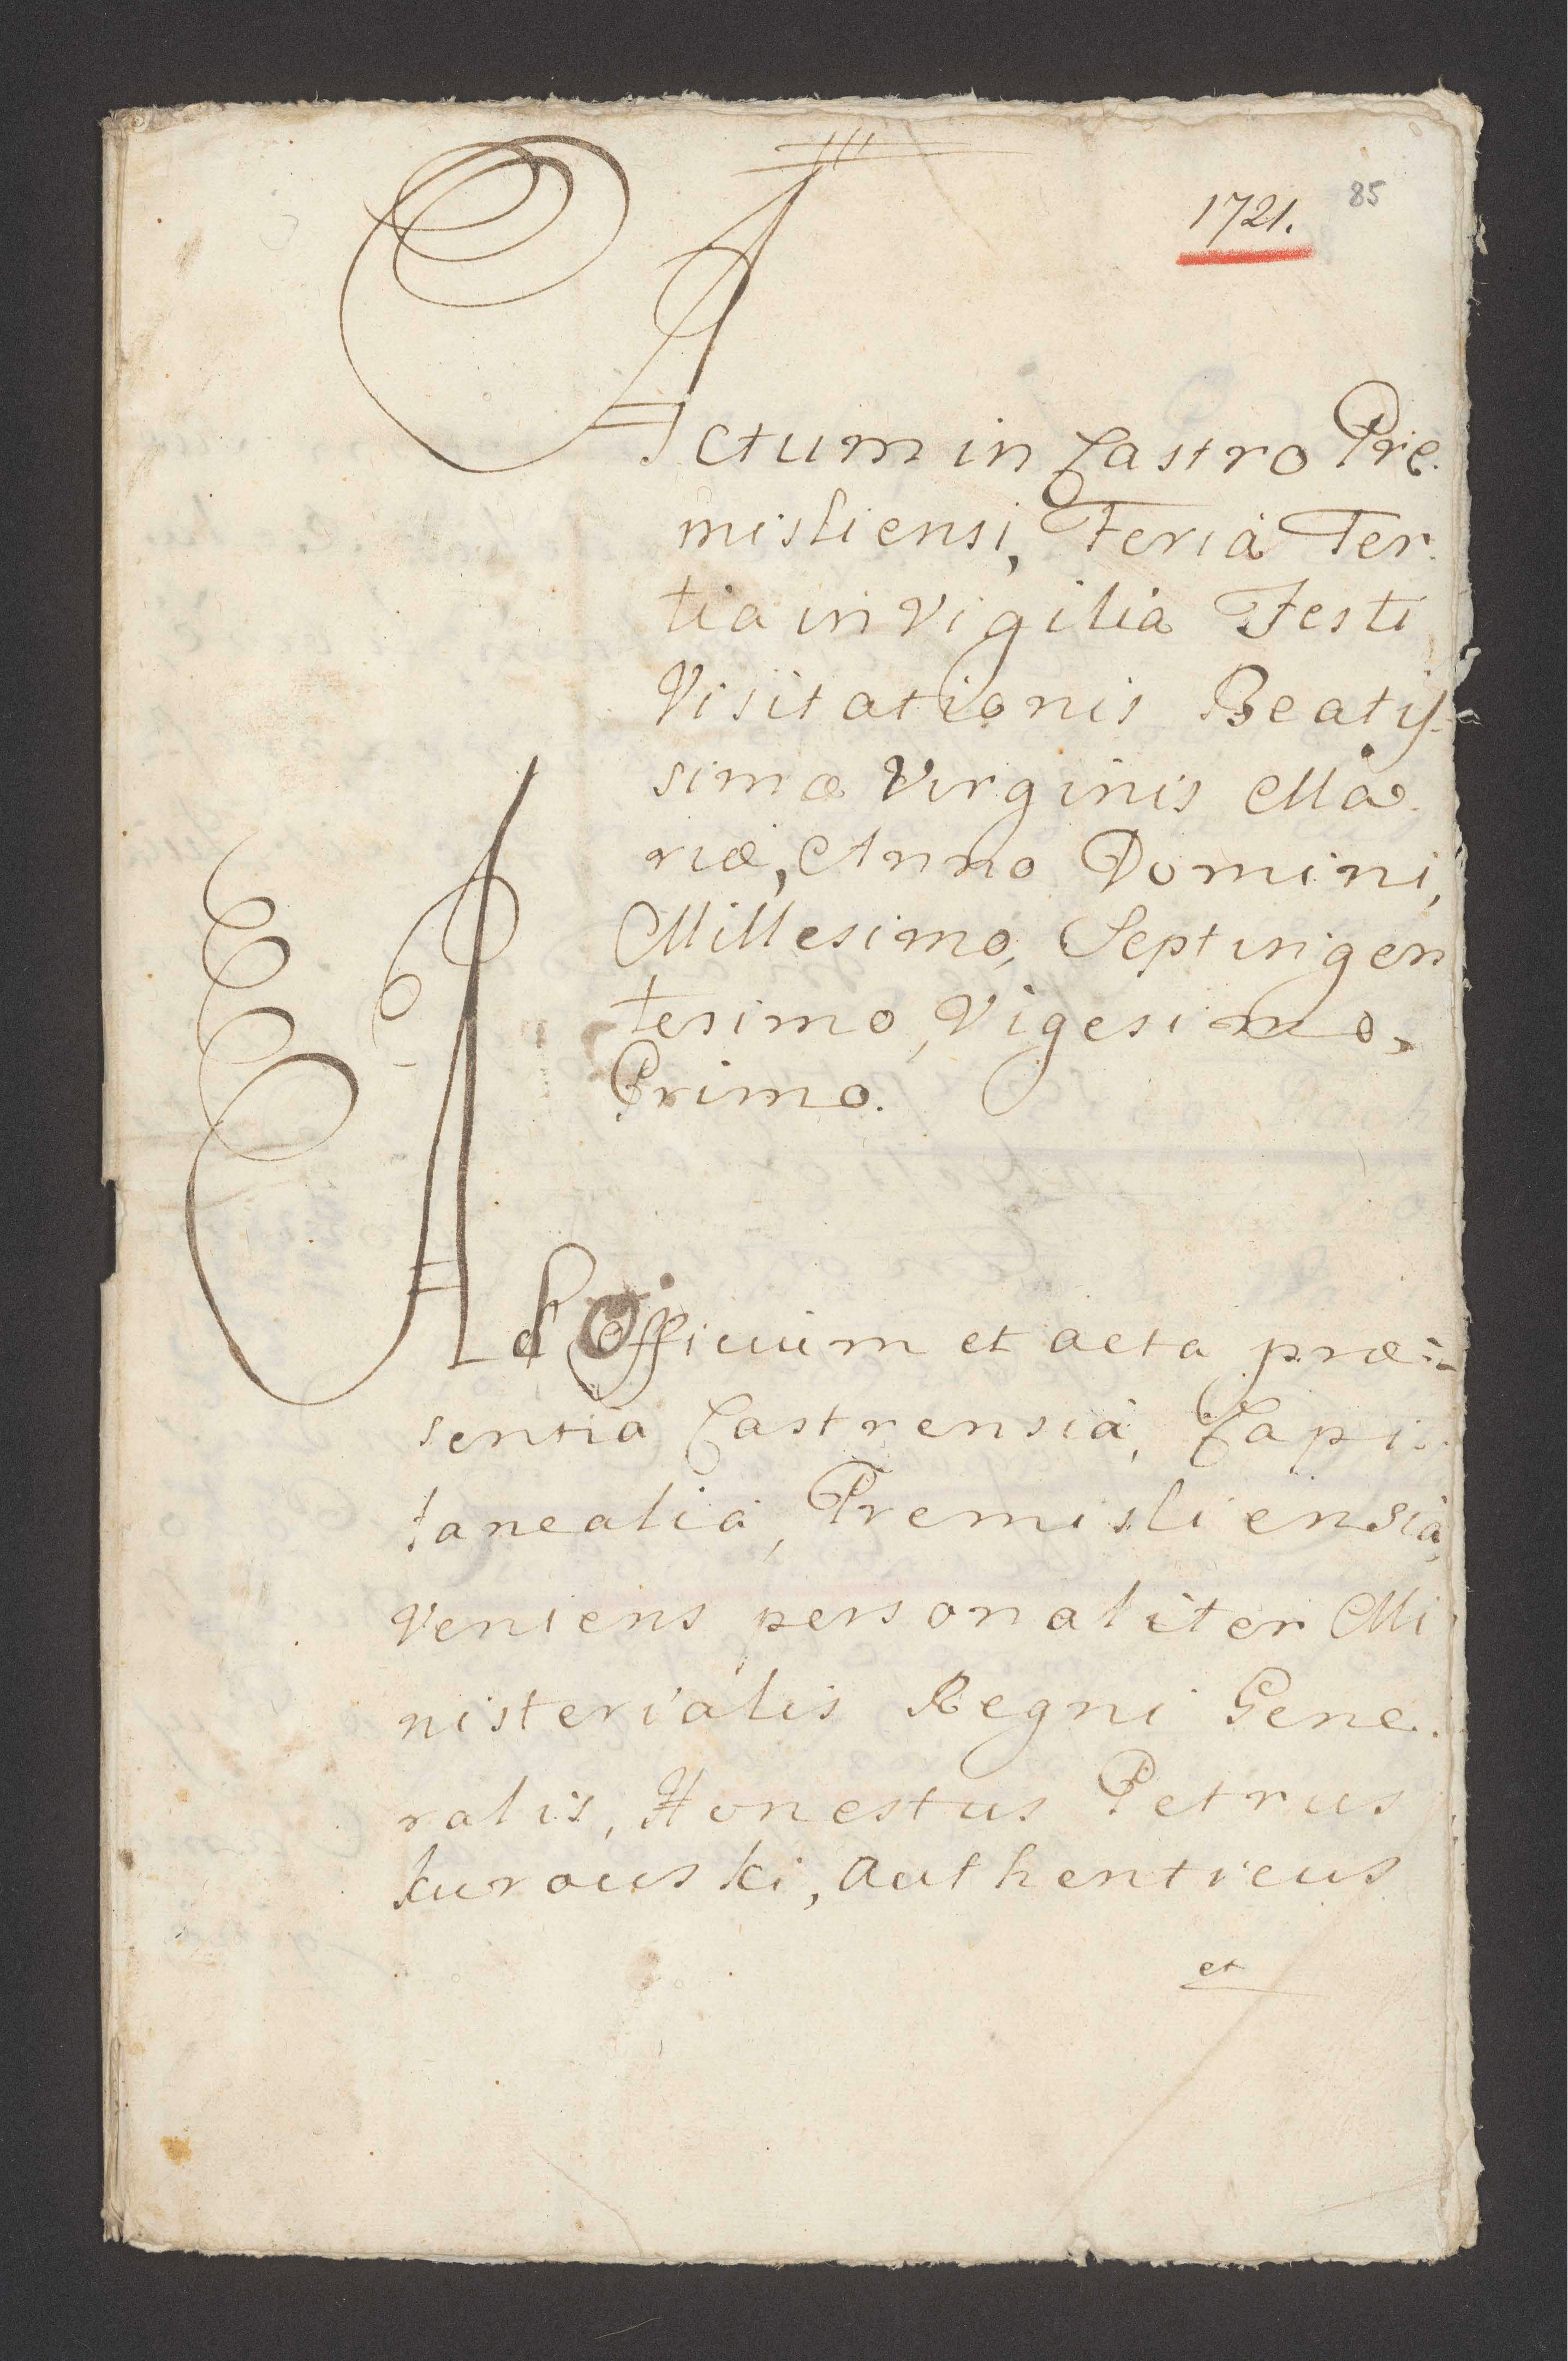 1721. 85
Actum in Castro Pre-
misliensi, Feria Ter-
tia in Vigilia Festi
Visitationis Beatis-
simæ Virginis Ma-
riæ, Anno Domini,
Millesimo, Septingen
tesimo, Vigesimo,
Primo.
Ad Officium et acta præ-
sentia Castrensia, Capi-
tanealia, Premisliensia,
Veniens personaliter Mi
nisterialis Regni Gene-
ralis, Honestus Petrus
kurowski, authenticus
et